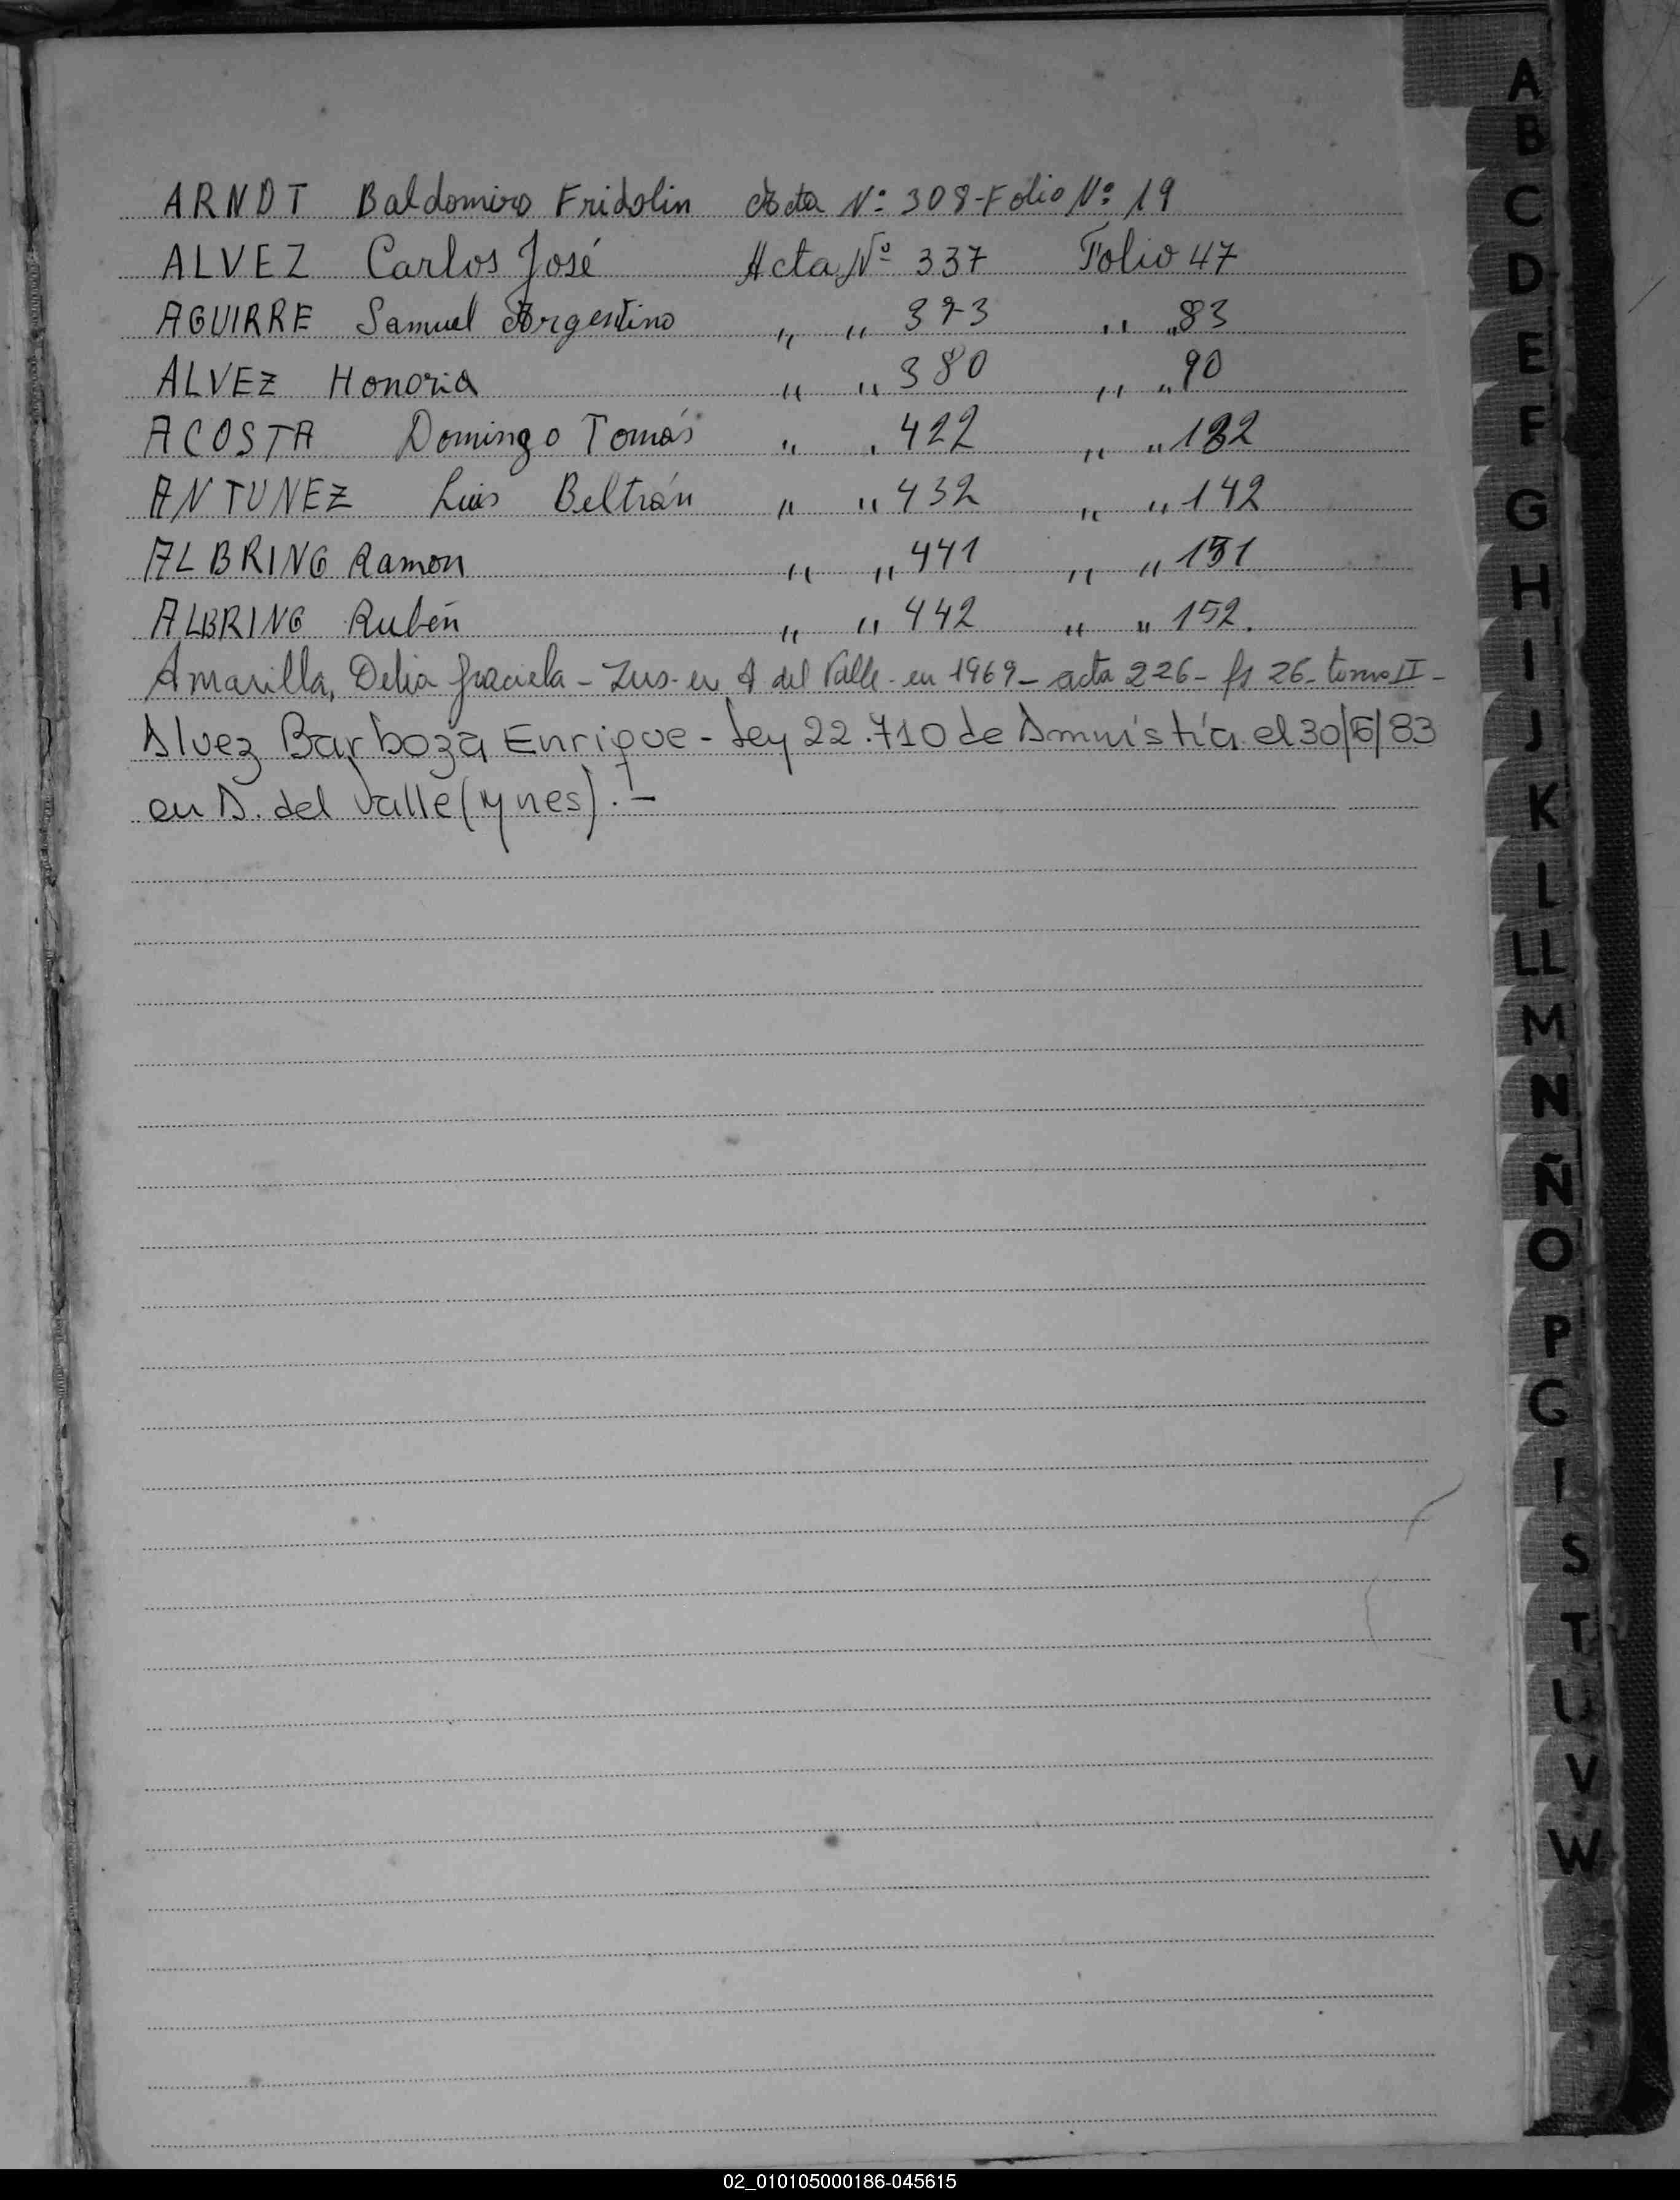 ARNDT Baldomiro Fridolin Acta Nº 308-Folio Nº 19
ALVEZ Carlos José Acta Nº 337 Folio 47
AGUIRRE Samuel Argentino " " 373 " " 83
ALVEZ Honoria " " 380 " " 90
ACOSTA Domingo Tomás " " 422 " " 132
ANTUNEZ Luis Beltrán " " 432 " " 142
ALBRING Ramon " " 441 " " 151
ALBRING Rubén " " 442 " " 152.
Amarilla, Delia Graciela - Ins. en A del Valle - en 1969 - acta 226 - fs 26 - tomo II -
Alvez Barboza Enrique - Ley 22.710 de Amnistía el 30/6/83
en A. del Valle (Mnes). -
A
B
C
D
E
F
G
H
I
J
K
L
LL
M
N
Ñ
O
P
S
T
U
V
W
02_010105000186-045615